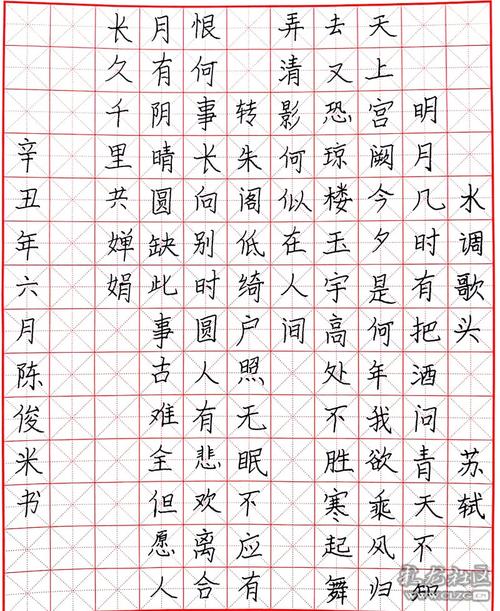 水调歌头 苏轼
明月几时有把酒问青天不知
天上宫阙今夕是何年我欲乘风归
去又恐琼楼玉宇高处不胜寒起舞
弄清影何似在人间
转朱阁低绮户照无眠不应有
恨何事长向别时圆人有悲欢离合
月有阴晴圆缺此事古难全但愿人
长久千里共婵娟
辛丑年六月陈俊米书